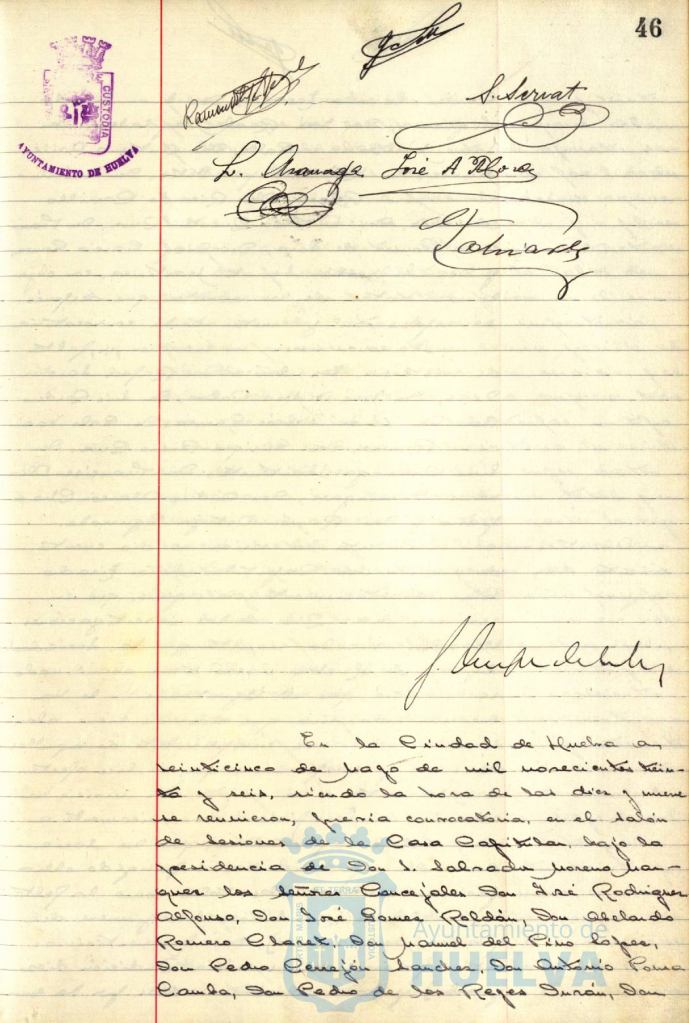 46
CUSTODIA
AYUNTAMIENTO DE HUELVA
S. Servat
José A
En la Ciudad de Huelva a
veinticinco de Mayo de mil novecientos trein-
ta y seis, siendo la hora de las diez y nueve
se reunieron, previa convocatoria, en el salón
de sesiones de la Casa Capitular, bajo la
presidencia de Don S. Salvador Moreno Mar-
quez los señores Concejales Don José Rodriguez
Alfonso, Don José Gomez Roldán, Don Abelardo
Romero Claret, Don Manuel del Pino Lopez,
Don Pedro Cerrejón Sanchez, Don Antonio Ponce
Don Pedro de los Reyes Durán, Don
Ayuntamiento de
HUELVA